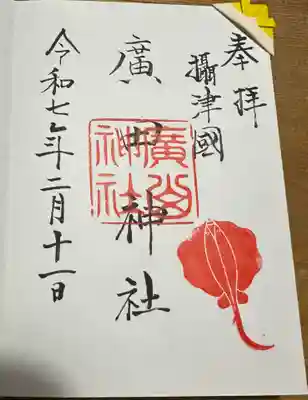 奉拝
攝津國
廣田神社
廣田
神社
令和七年二月十一日